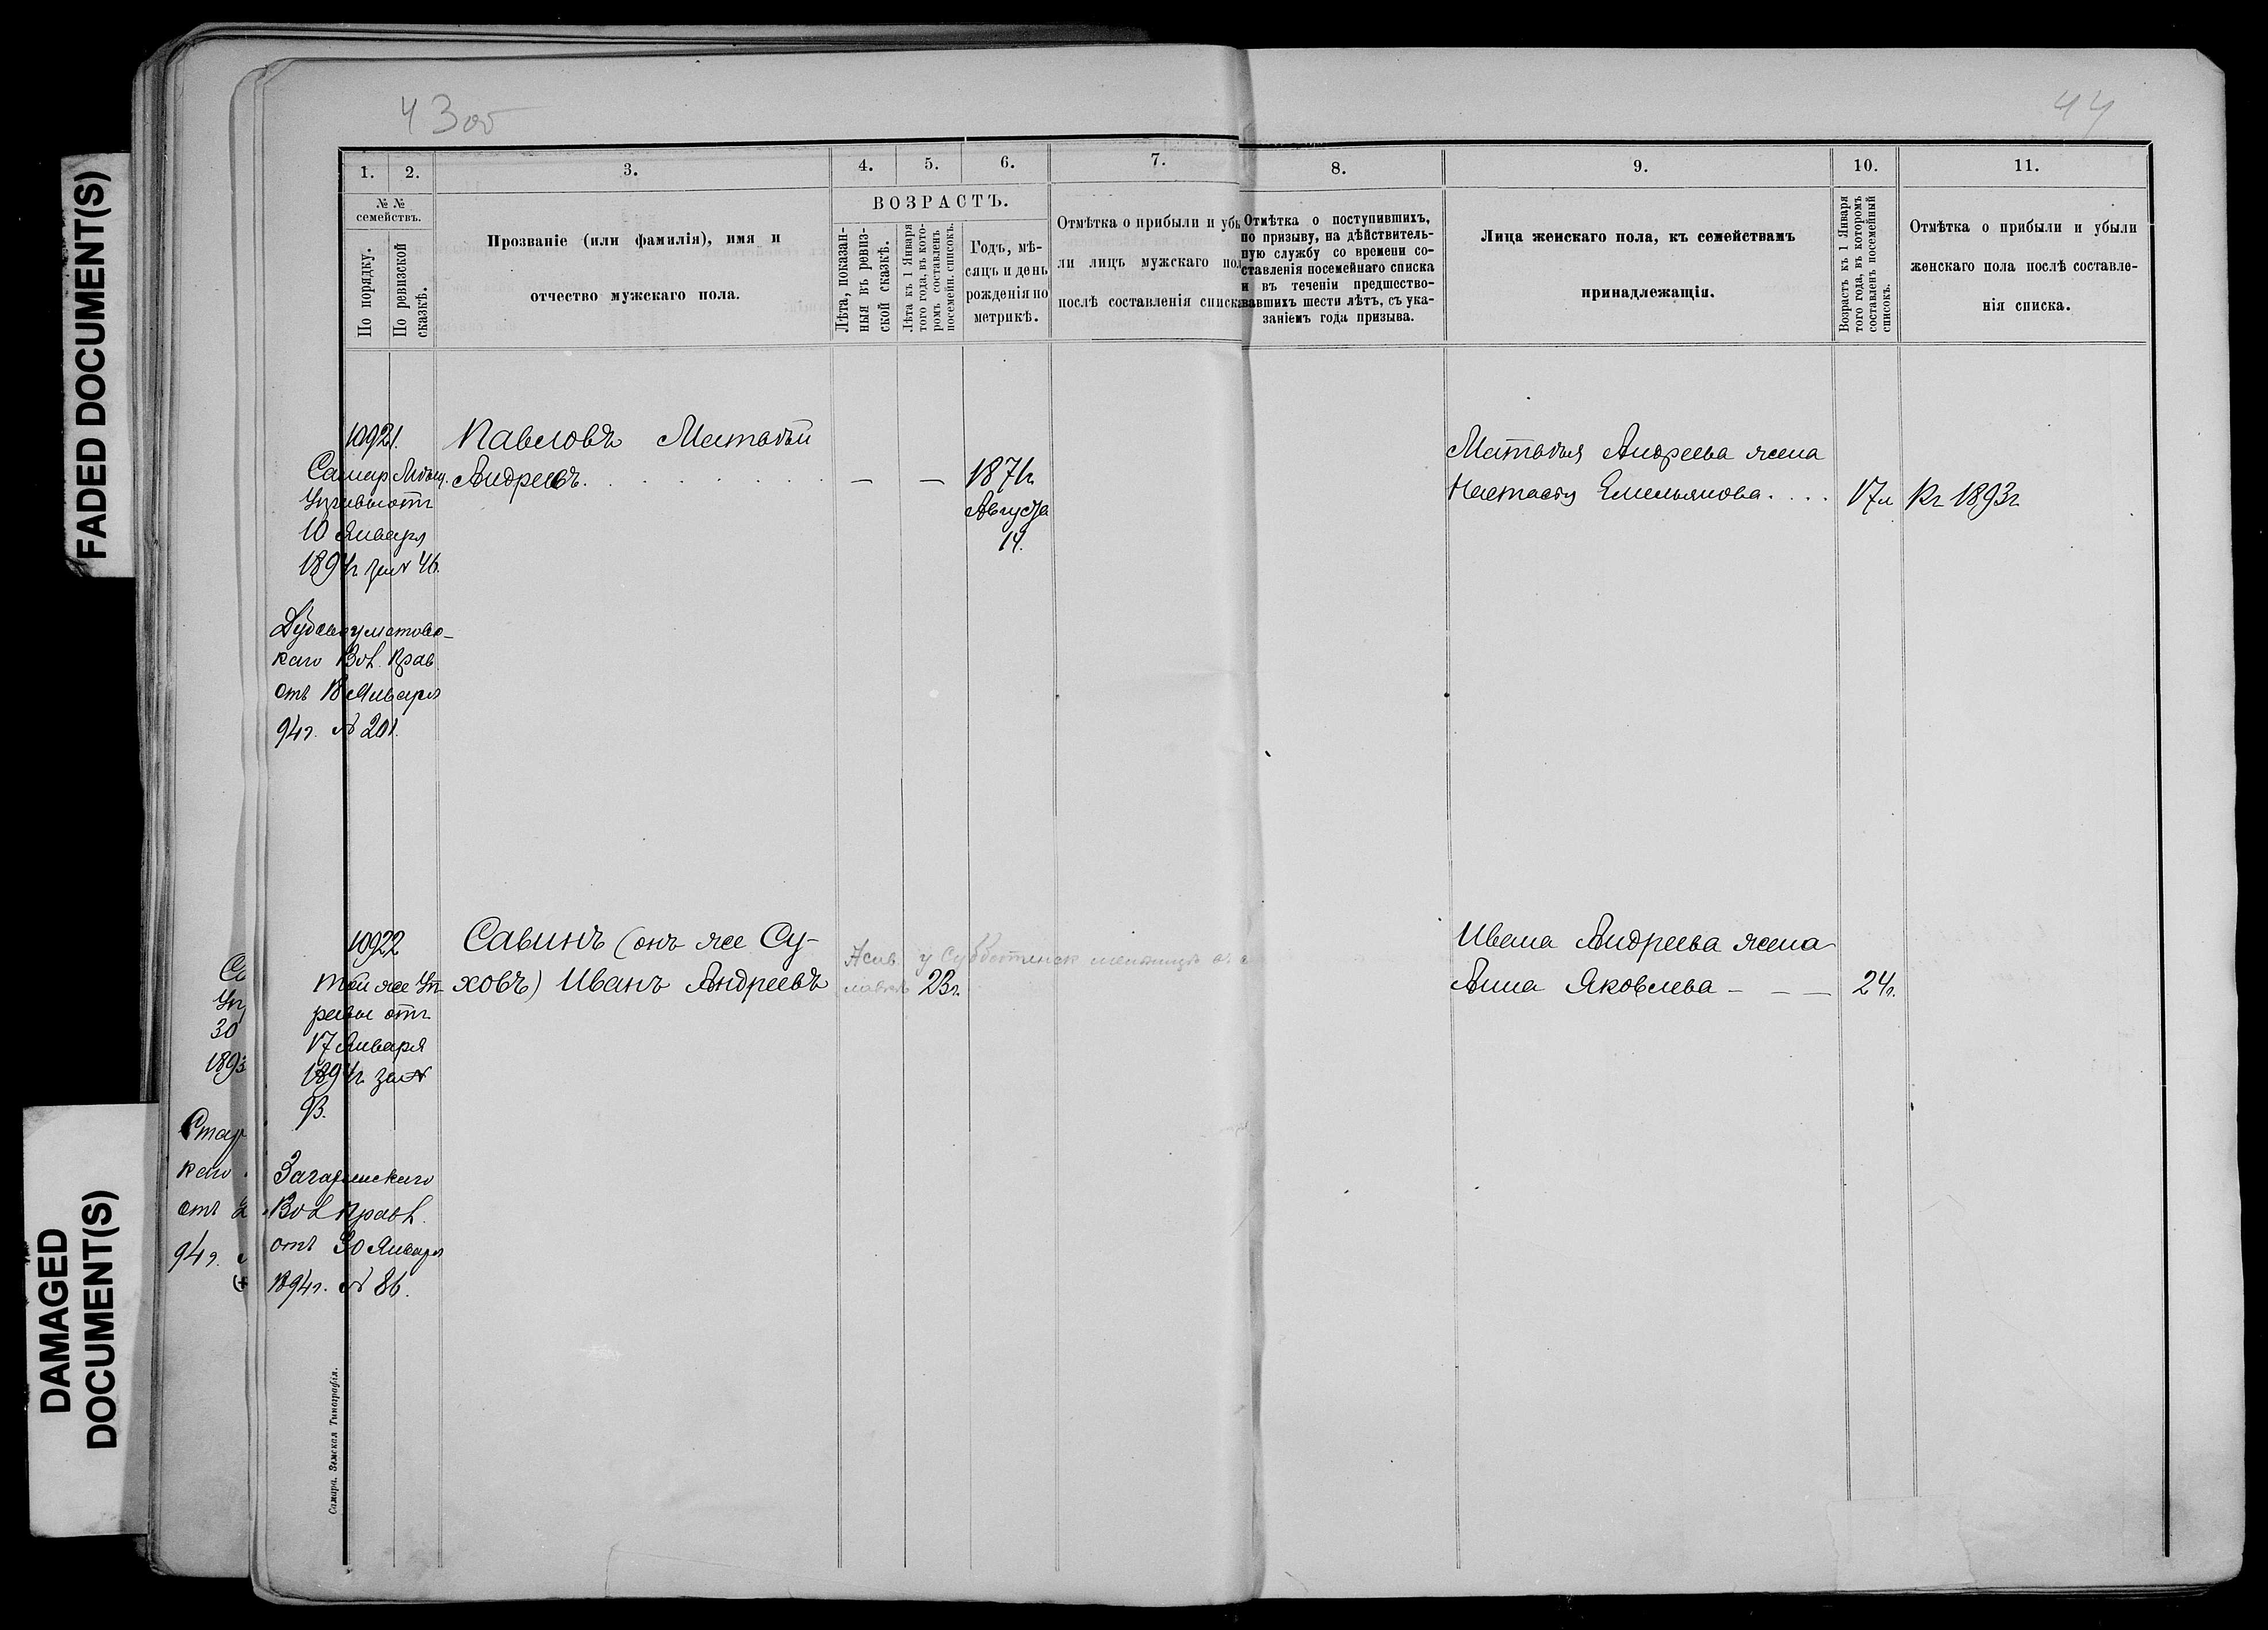 FADED DOCUMENT(S)
DAMAGED
DOCUMENT(S)
43об
44
1.
2.
3.
4.
5.
6.
7.
8.
9.
10.
11.
№ №
семействъ.
По порядку.
По ревизской
сказкѣ.
Прозваніе (или фамилія), имя и
отчество мужскаго пола.
ВОЗРАСТЪ.
Лѣта, показан-
ныя въ ревиз-
ской сказкѣ.
Лѣта къ 1 Января
того года, въ кото-
ромъ составленъ
посемейн. списокъ.
Годъ, мѣ-
сяцъ и день
рожденія по
метрикѣ.
Отмѣтка о прибыли и убы
ли лицъ мужскаго пол
послѣ составленія списка
Отмѣтка о поступившихъ,
по призыву, на дѣйствитель-
ную службу со времени со-
ставленія посемейнаго списка
и въ теченіи предшество-
вавшихъ шести лѣтъ, съ ука-
заніемъ года призыва.
Лица женскаго пола, къ семействамъ
принадлежащія.
Возрастъ къ 1 Января
того года, въ которомъ
составленъ посемейный
списокъ.
Отмѣтка о прибыли и убыли
женскаго пола послѣ составле-
нія списка.
10921.
Павловъ Матвѣй
Андреевъ. – – 1871г.
Августа
14.
Самар
10 Января
1894г за № 46.
каго Вол. Прав
отъ 18 Января
94г. № 201.
Матвѣя Андреева жена
Настасья Емельянова. . . . 17л
Къ 1893г.
10922
Савинъ (онъ же Су-
ховъ) Иванъ Андреевъ 23г.
той же Уп-
равы отъ
17 Января
1894г. за №
93.
Вол Правл.
отъ 30 Января
1894г. № 86.
Ивана Андреева жена
Анна Яковлева – – – 24г.
30
1893
каго
отъ
94г.
Самара. Земская Типографія.